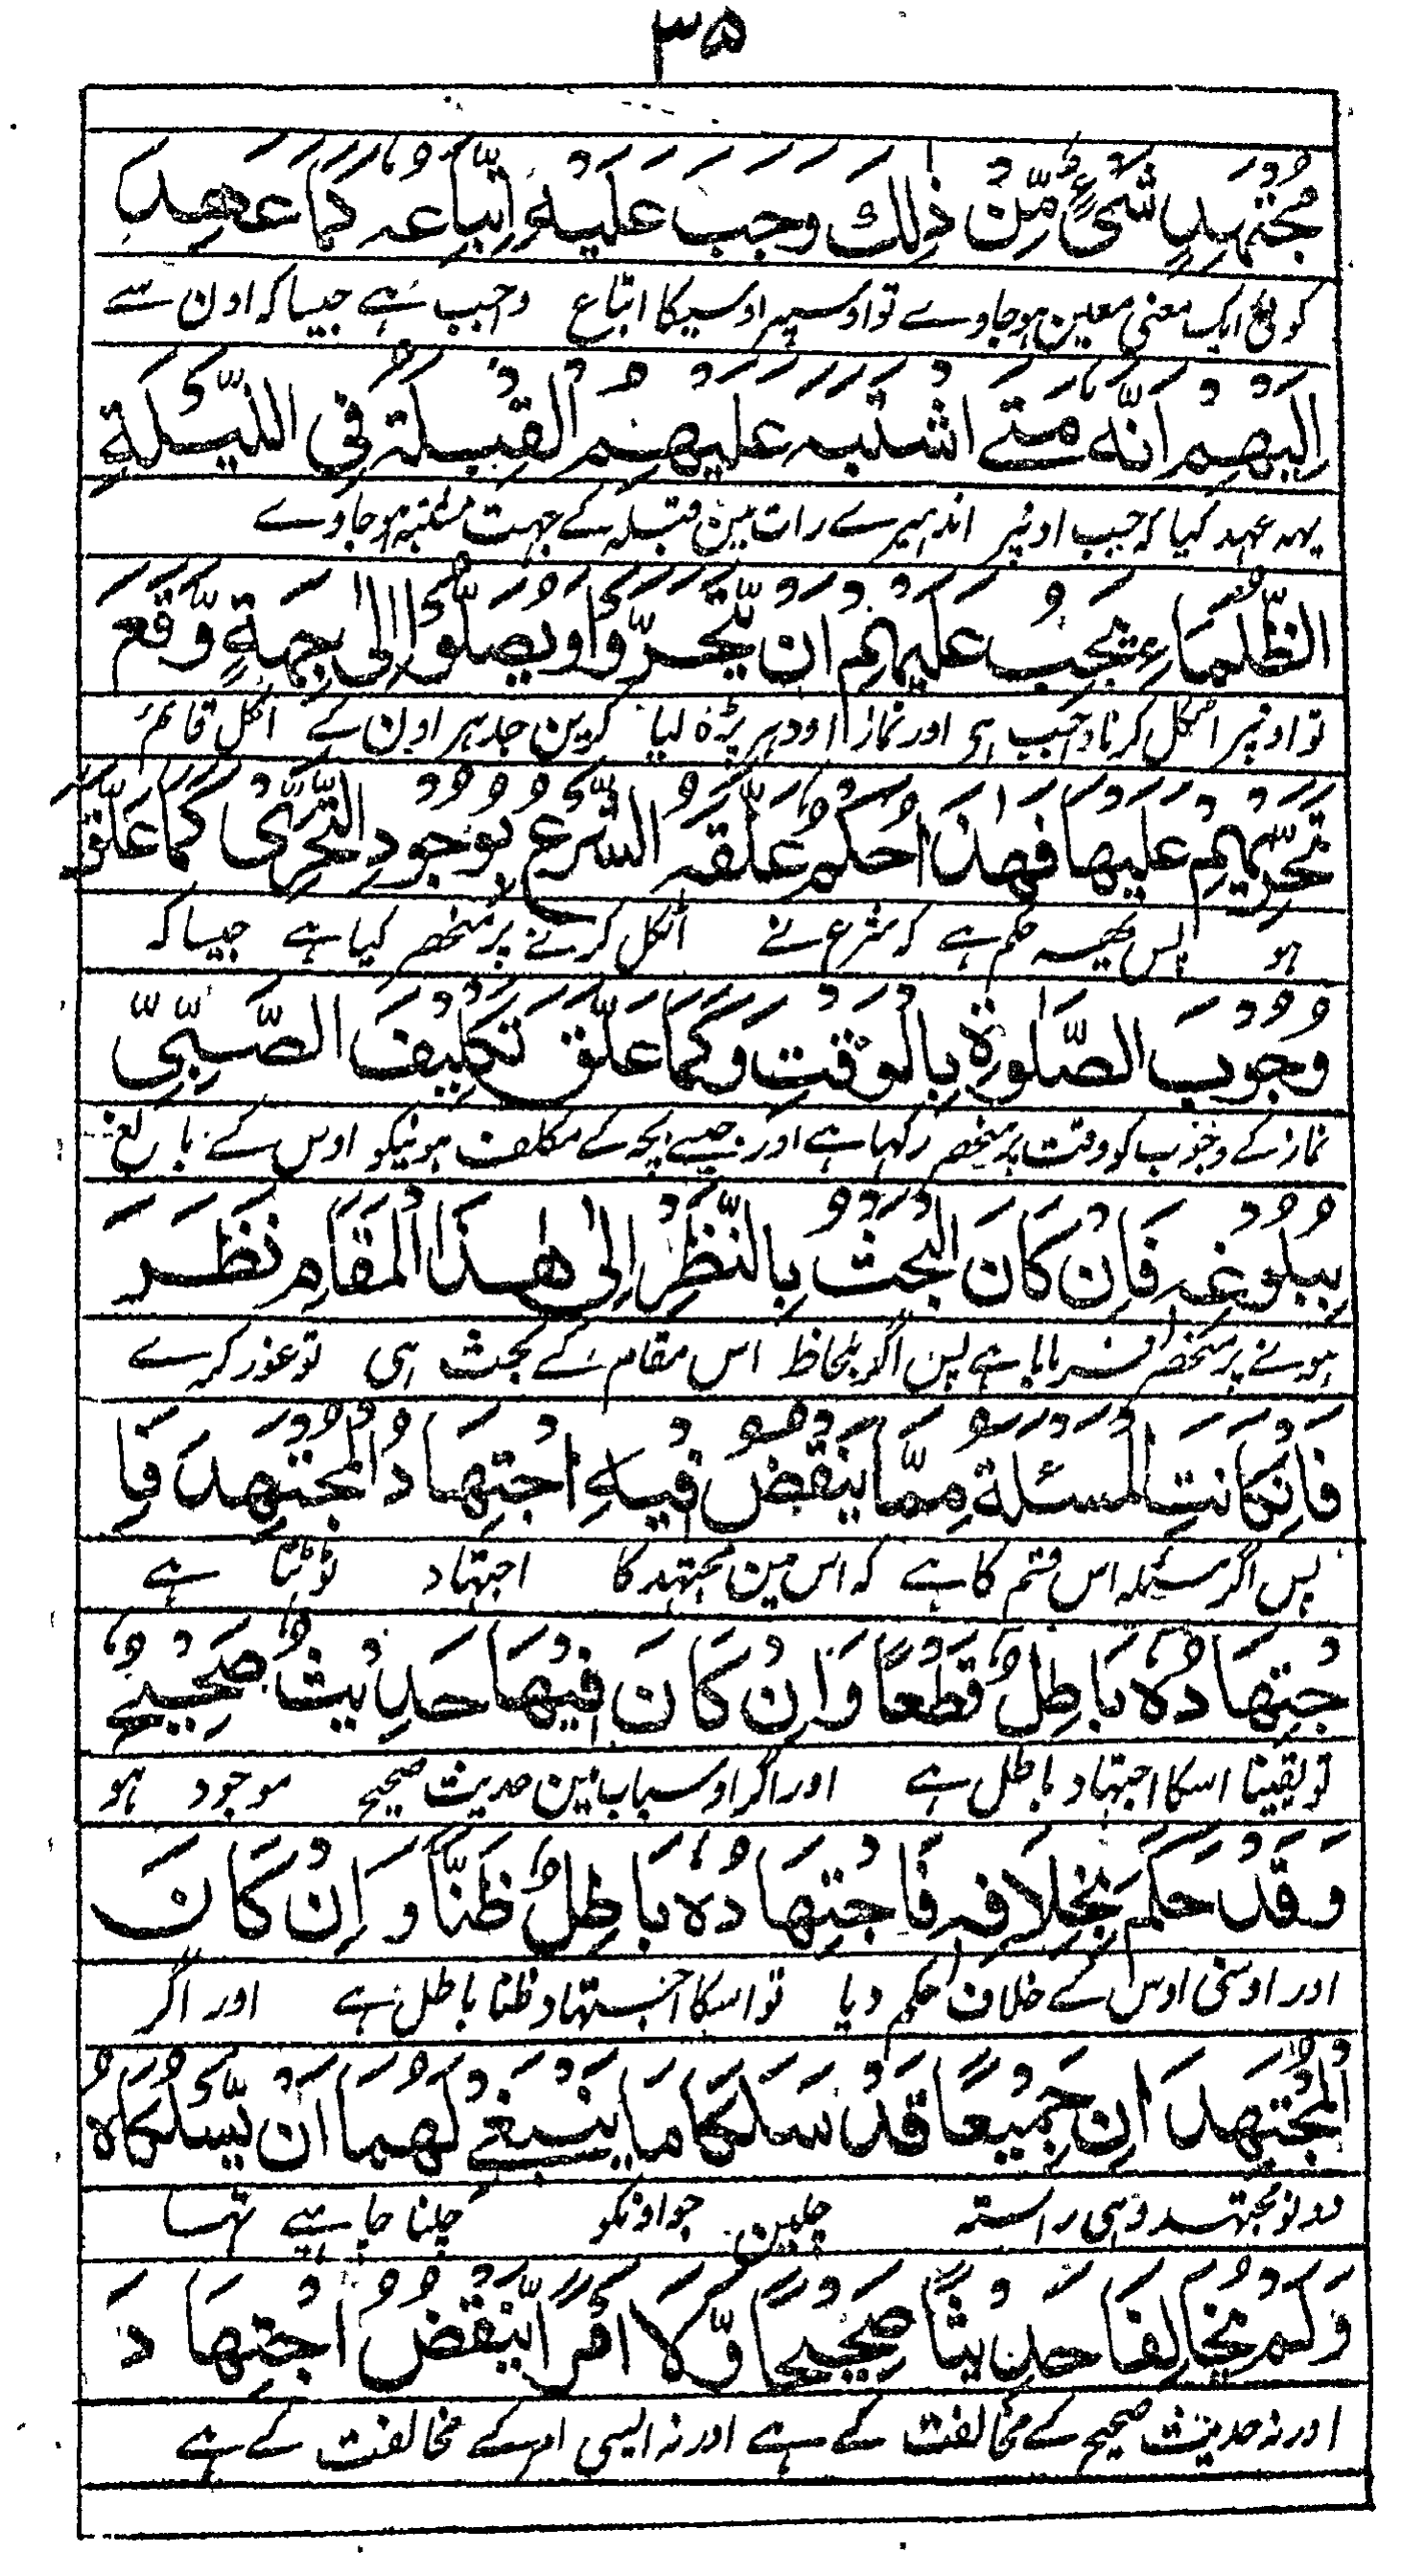 ٣٥
مُجْتَهِدٍ شَيْءٌ مِّنْ ذٰلِكَ وَجَبَ عَلَيْهِ اتِّبَاعُهٗ كَمَا عَهِدَ
کوئی ایک معنی معین ہوجاوے تو اوسپر اوسیکا اتباع واجب ہے جیسا کہ اون سے
اِلَيْهِمْ اَنَّهٗ مَتٰے اشْتَبَهَ عَلَيْهِمُ الْقِبْلَةُ فِي اللَّيْلَةِ
یہہ عہد کیا کہ جب اونپر اندہیرے رات مین قبلہ کے جہت مشتبہ ہوجاوے
الظَّلْمَاءِ يَجِبُ عَلَيْهِمْ اَنْ يَّتَحَرَّوْا وَيُصَلُّوْا اِلٰى جِهَةٍ وَّقَعَ
تو اونپر اٹکل کرنا واجب ہی اور نماز اودہر پڑہ لیا کرین جدہر اون کے اٹکل قائم
تَحَرِّيْهِمْ عَلَيْهَا فَهٰذَا حُكْمٌ عَلَّقَهُ الشَّرْعُ بِوُجُوْدِ التَّحَرِّىْ كَمَا عَلَّقَ
ہو پس یہہ حکم ہے کہ شرع نے اٹکل کرنے پر منحصر کیا ہے جیسا کہ
وُجُوْبَ الصَّلٰوةِ بِالْوَقْتِ وَكَمَا عَلَّقَ تَكْلِيْفَ الصَّبِىِّ
نماز کے وجوب کو وقت پر منحصر رکہا ہے اور جیسے بچہ کے مکلف ہونیکو اوس کے بالغ
بِبُلُوْغِهٖ فَاِنْ كَانَ الْبَحْثُ بِالنَّظَرِ اِلٰى هٰذَا الْمَقَامِ نَظَرَ
ہونے پر منحصر فرمایا ہے پس اگر بلحاظ اس مقام کے بحث ہی تو غور کرے
فَاِنْ كَانَتِ الْمَسْئَلَةُ مِمَّا يَنْقُضُ فِيْهِ اجْتِهَادُ الْمُجْتَهِدِ فَا
پس اگر مسئلہ اس قسم کا ہے کہ اس مین مجتہد کا اجتہاد ٹوٹتا ہے
جْتِهَادُهٗ بَاطِلٌ قَطْعًا وَاِنْ كَانَ فِيْهَا حَدِيْثٌ صَحِيْحٌ
تو یقینا اسکا اجتہاد باطل ہے اور اگر اوس باب مین حدیث صحیح موجود ہو
وَقَدْ حَكَمَ بِخِلَافِهٖ فَاجْتِهَادُهٗ بَاطِلٌ ظَنًّا وَاِنْ كَانَ
اور اوسنی اوس کے خلاف حکم دیا تو اسکا اجتہاد ظنا باطل ہے اور اگر
الْمُجْتَهِدَانِ جَمِيْعًا قَدْ سَلَكَا مَا يَنْبَغِے لَهُمَا اَنْ يَّسْلُكَاهُ
دونو مجتہد وہی راستہ چلین جو اونکو چلنا چاہیے تہا
وَلَمْ يُخَالِفَا حَدِيْثًا صَحِيْحًا وَّلَا اَمْرًا يَّنْقُضُ اجْتِهَادَ
اور نہ حدیث صحیح کے مخالفت کے ہے اور نہ ایسی امر کے مخالفت کے ہے